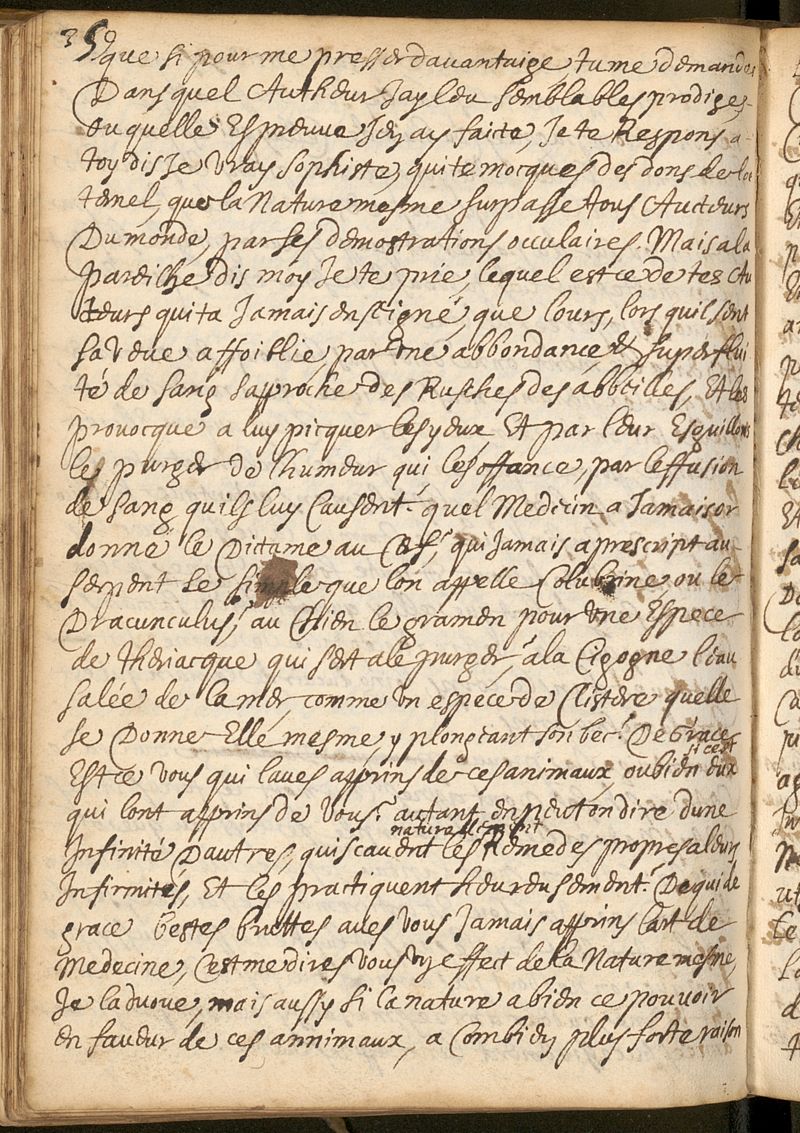 359
que si pour me presser davantaige, tu me demandes
Dans quel Autheur Jay leu semblables prodiges,
ou quelle Espreuve Jen ay faicte, Je te Respons a
toy dis Je vray sophiste, qui te mocques des dons de le
ternel, que la Nature mesme surpasse tous Aucteurs
Du monde, par ses demostrations occulaires. Mais a la
pareilhe dis moy Je te prie, lequel est ce de tes Au
teurs qui ta Jamais enseigné, que lours, lors quil sent
sa veue affoiblie, par une abbondance et superflui
té de sang sapproche des Rusches des abbeilles, Et les
provocque a luy picquer les yeux Et par leur Esguillons
le purger de lhumeur qui les offance, par leffusion
de sang quils luy Causent. quel Medecin a Jamais or
donné le Dictame au Cerf, qui Jamais a prescript au
serpent le simple que lon appelle Colubrine, ou le
Dracunculus, au Chien le gramen pour une Espece
de theriacque qui sert a le purger, a la Cigogne leau
salée de la mer, comme un espece de Clistere quelle
se Donne Elle mesme, y plongeant son bec. De grace
Est ce vous qui laves apprins de ces animaux, ou bien si cest eux
qui lont apprins de vous. autant en peut on dire dune
Infinité Dautres, qui scavent naturellement les Remedes propres a leurs
Infirmités, Et les practiquent heureusement. De qui de
grace bestes bruttes aves vous Jamais apprins lart de
Medecine, Cest me dires vous un effect de la Nature mesme,
Je ladvoue, mais aussy si la nature a bien ce pouvoir
en faveur de ces annimaux, a Combien plus forte raison